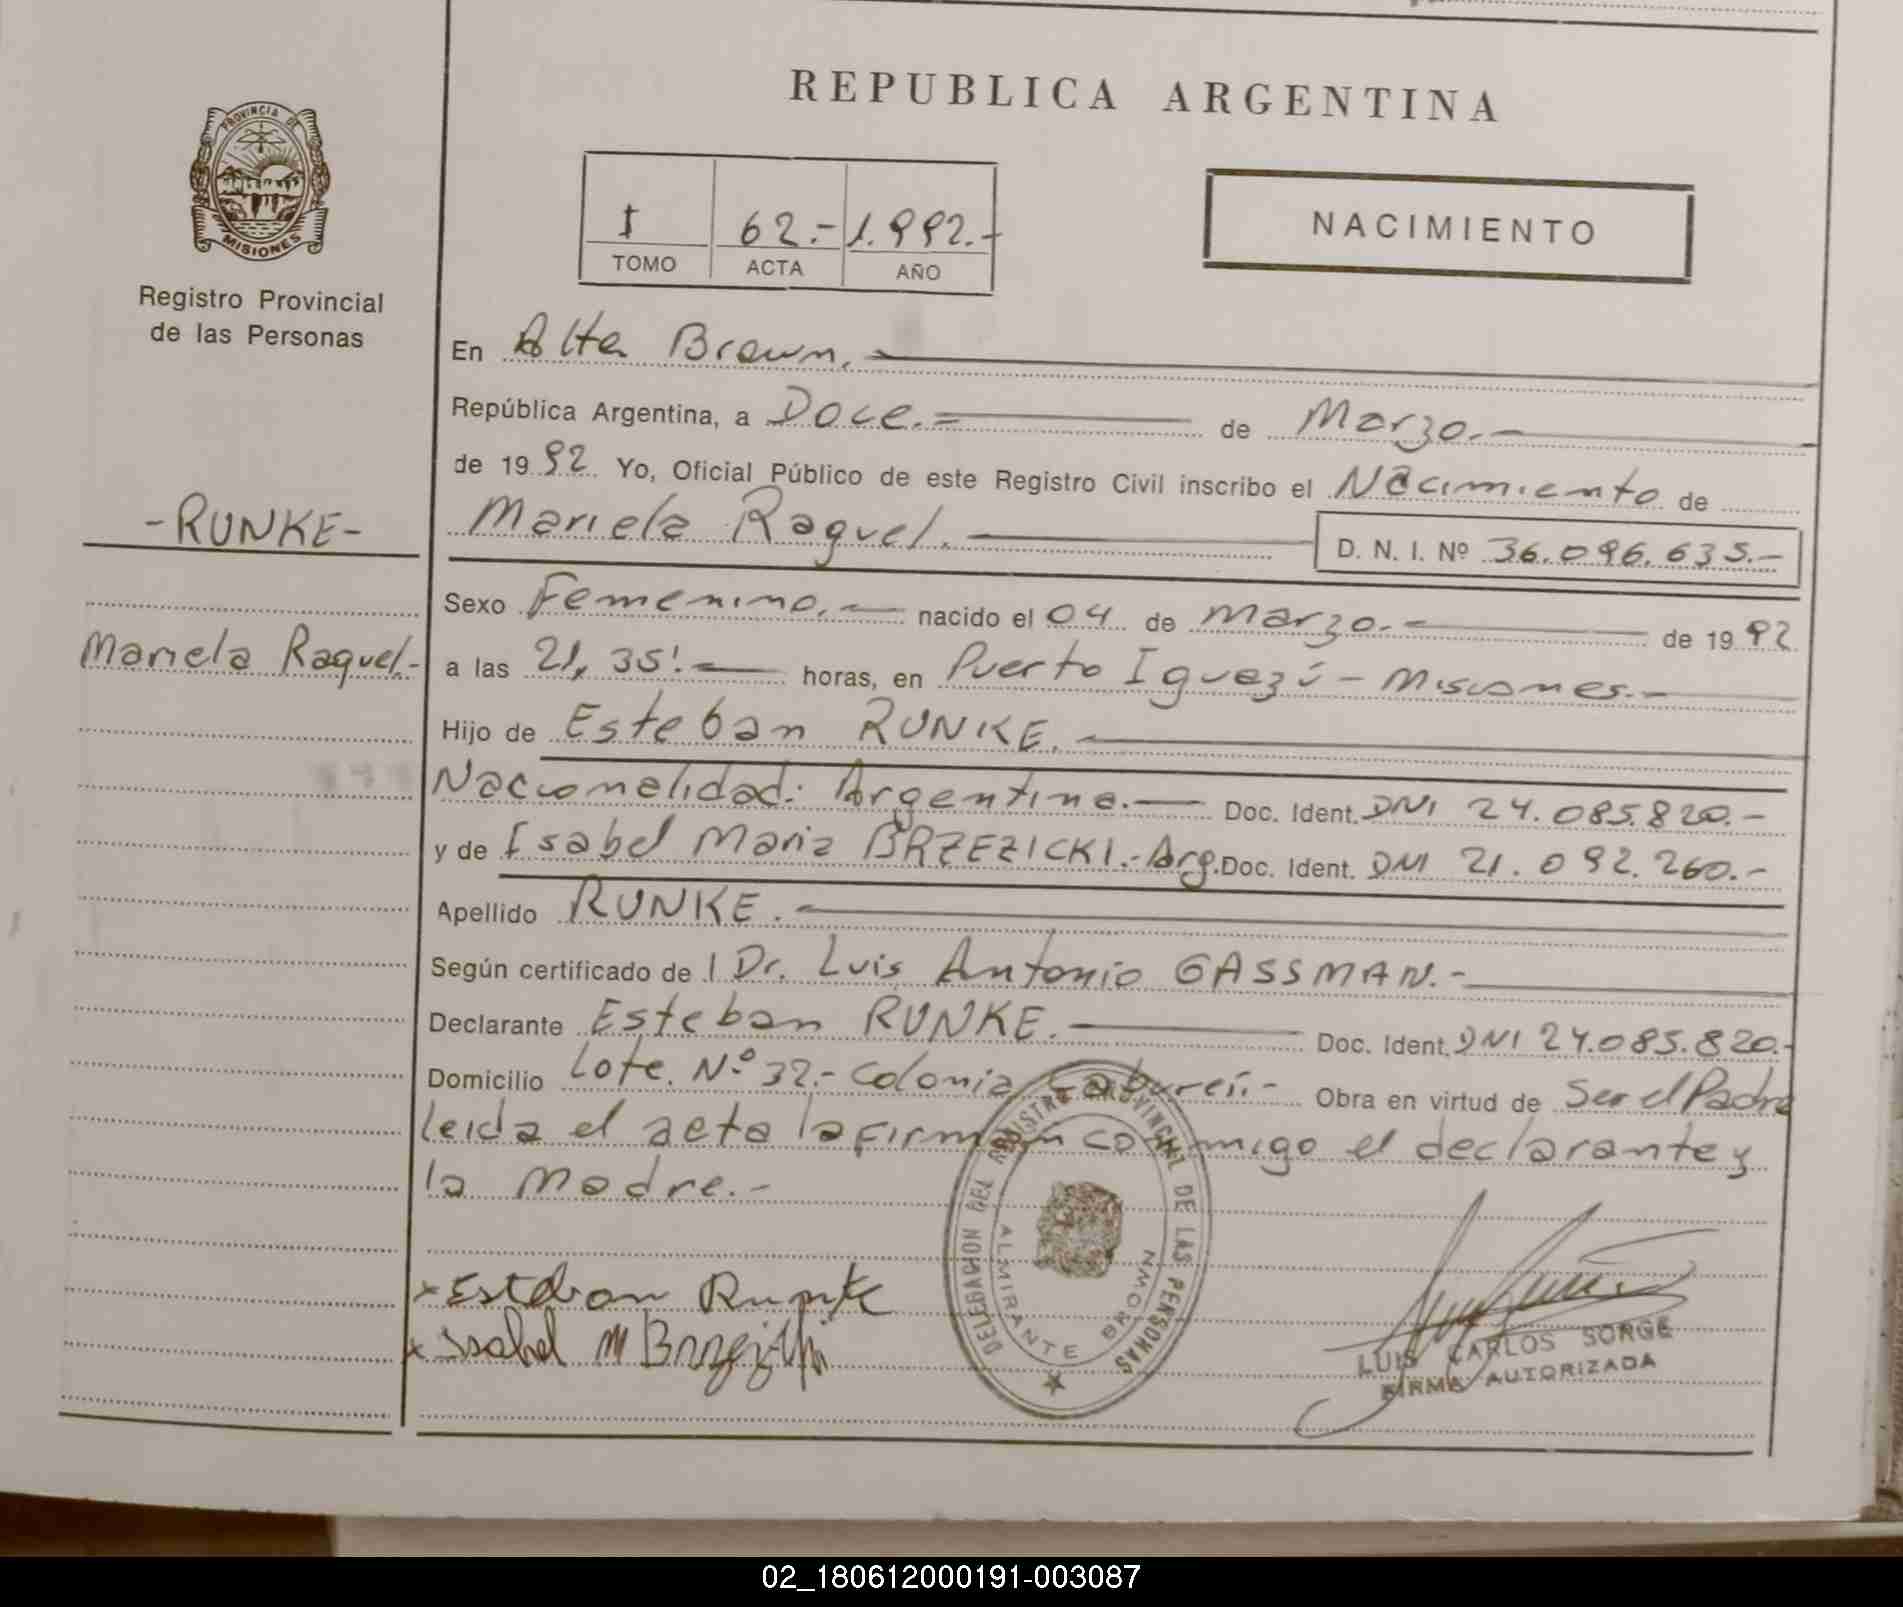 REPUBLICA ARGENTINA
PROVINCIA DE
MISIONES
Registro Provincial
de las Personas
I 62.- 1.992.-
TOMO ACTA AÑO
NACIMIENTO
En Alte Brown.
República Argentina, a Doce.- de Marzo.-
de 1992 Yo, Oficial Público de este Registro Civil inscribo el Nacimiento de
-RUNKE-
Mariela Raquel. D. N. I. Nº 36.096.635.-
Mariela Raquel.-
Sexo Femenino.- nacido el 04 de Marzo.- de 1992
a las 21,35'.- horas, en Puerto Iguazú - Misiones.-
Hijo de Esteban RUNKE.
Nacionalidad: Argentina.- Doc. Ident. DNI 24.085.820.-
y de Isabel Maria BRZEZICKI.- Arg. Doc. Ident. DNI 21.092.260.-
Apellido RUNKE.
Según certificado de l Dr. Luis Antonio GASSMAN.-
Declarante Esteban RUNKE. Doc. Ident. DNI 24.085.820.-
Domicilio Lote. Nº 32.- Colonia Cabureí.- Obra en virtud de Ser el Padre
leida el acta la firman conmigo el declarante y
la Madre.-
DELEGACION DEL REGISTRO PROVINCIAL DE LAS PERSONAS
ALMIRANTE BROWN
x Esteban Runke
x Isabel M
LUIS CARLOS SORGE
FIRMA AUTORIZADA
02_180612000191-003087